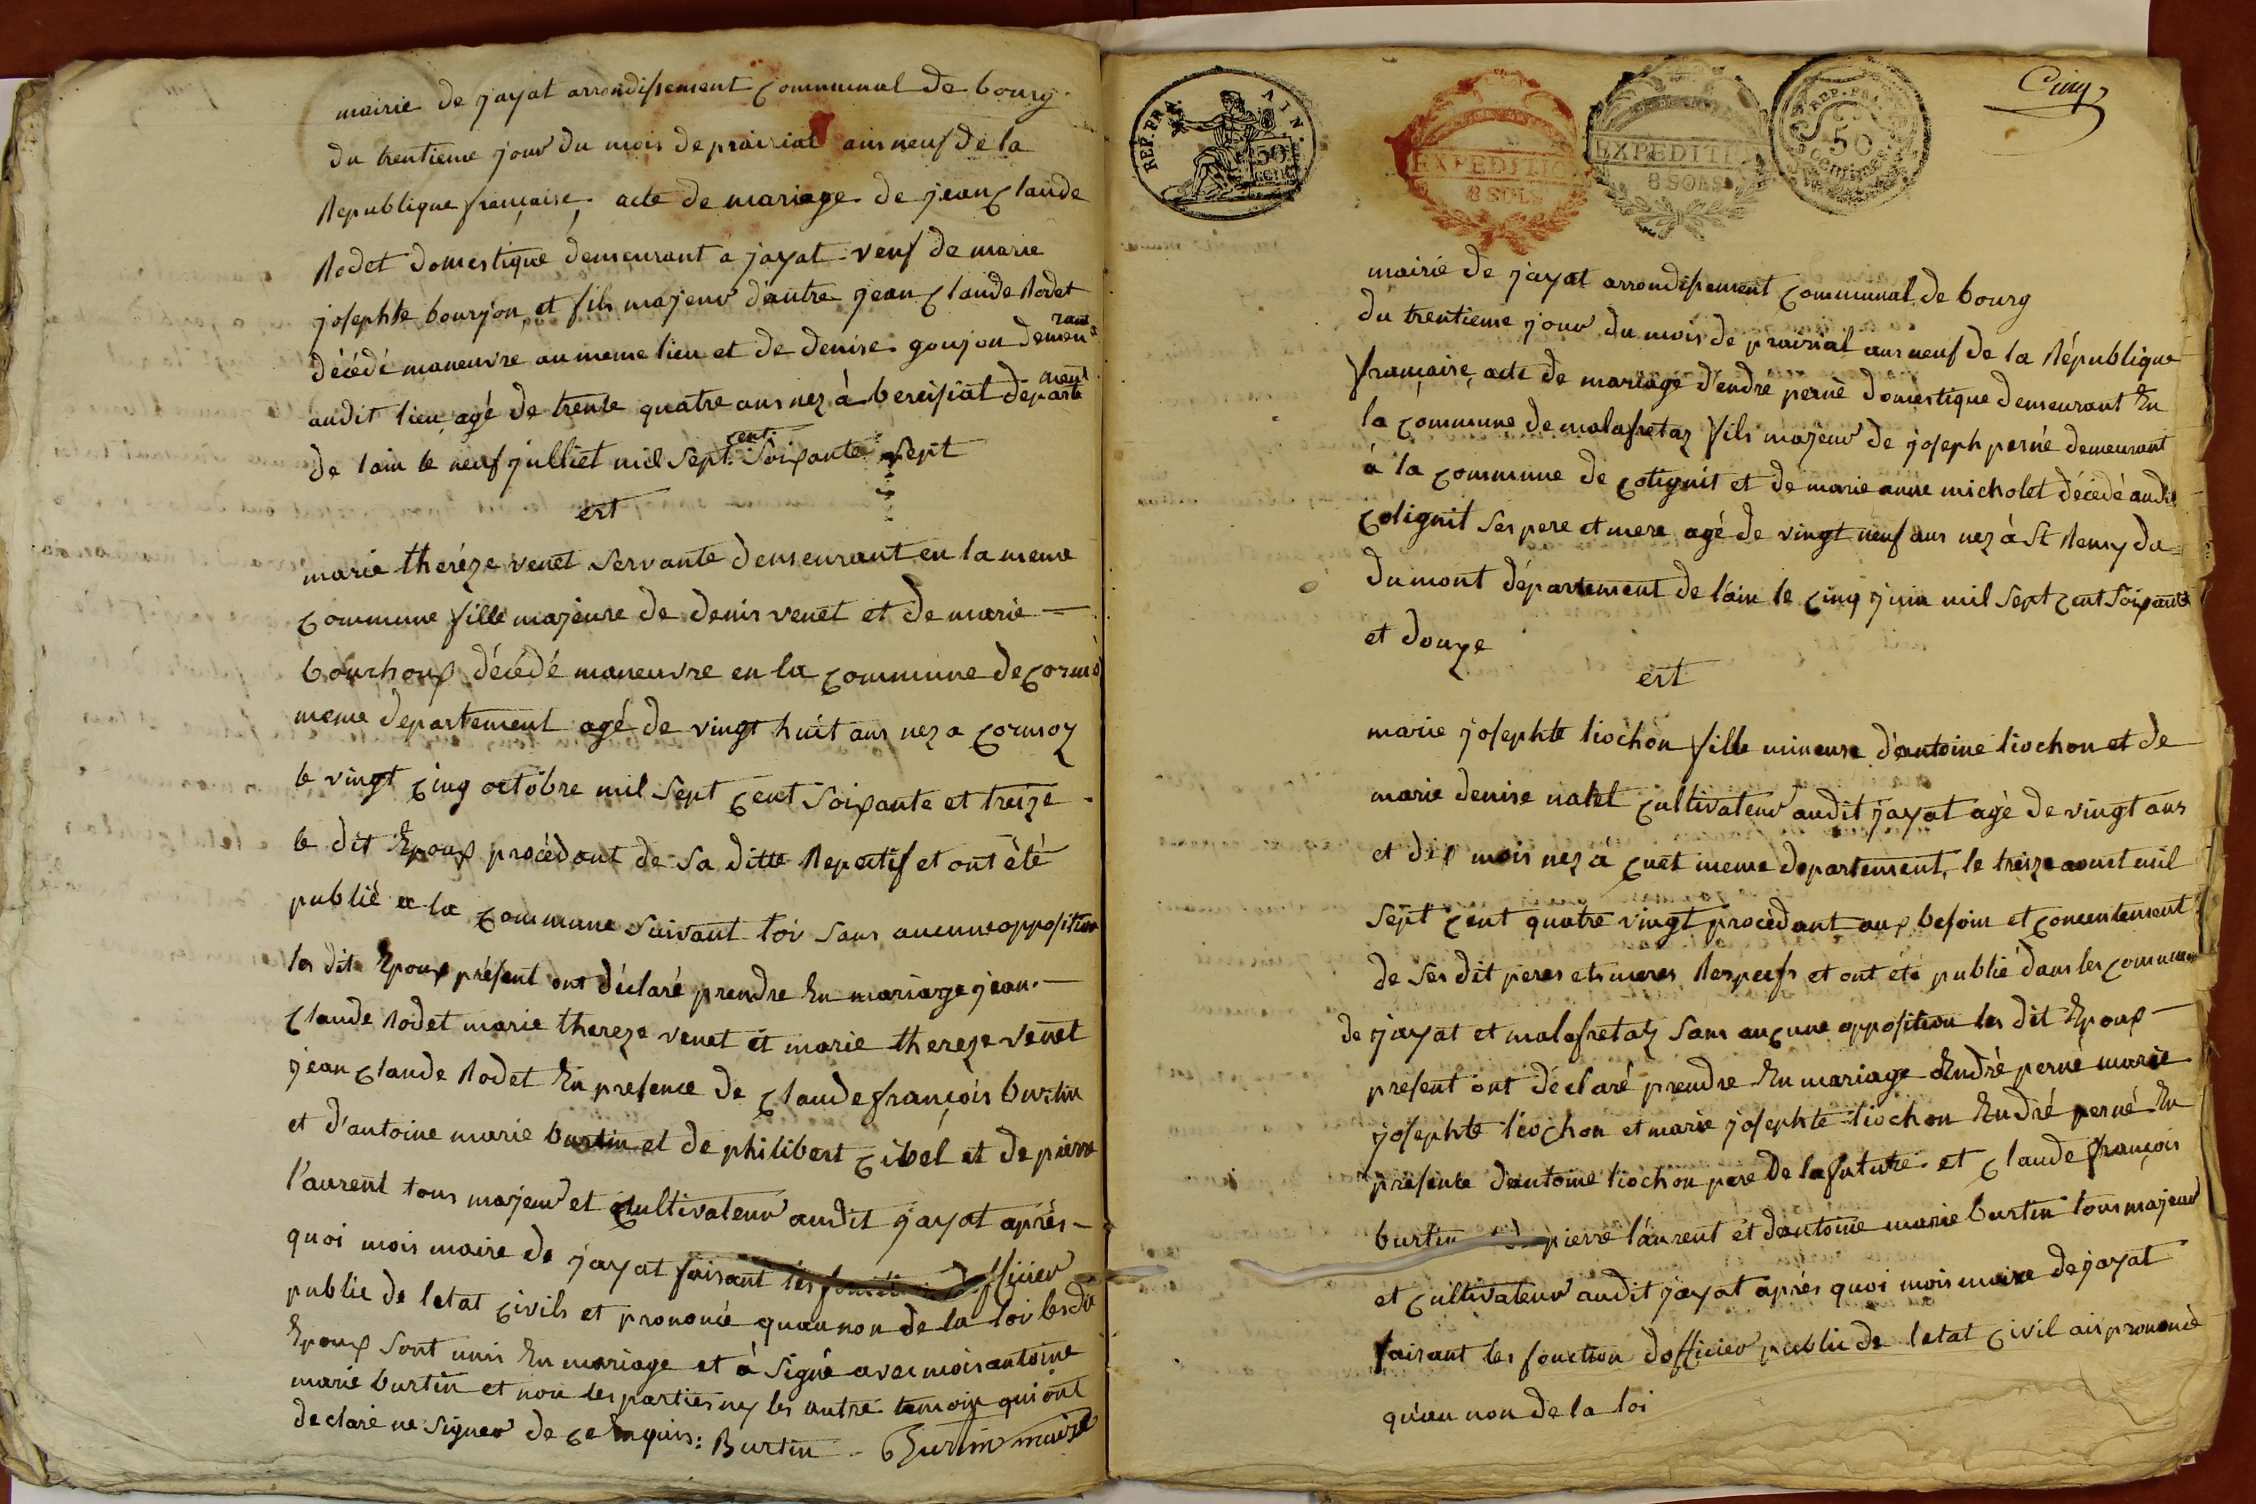 mairie de jayat arrondissement communal de bourg
du trentieme jour du mois de prairial ans neuf de la
Republique française, acte de mariage de jean claude
Rodet domestique demeurant a jayat veuf de marie
josephte bourjon et fils majeur d'autre jean claude Rodet
décédé maneuvre au meme lieu et de denise goujon demeurant
audit lieu agé de trente quatre ans nez à bereisiat departement
de lain le neuf julliet mil sept cent soixante sept
ert
marie theréze venet servante demeurant en la meme
commune fille majeure de denis venet et de marie
bouchoux décédé maneuvre en la commune de
meme departement agé de vingt huit ans nez a cormoz
le vingt cinq octobre mil sept cent soixante et treize
le dit Epoux procédant de sa ditte Repectif et ont été
publié a la commune suivant loi sans aucunne opposition
les dit Epoux présent ont déclaré prendre En mariage jean
claude Rodet marie thereze venet et marie thereze venet
jean claude Rodet En presence de claude françois burtin
et d'antoine marie burtin et de philibert cibel et de pierre
l'aurent tous majeur et cultivateur audit jayat après
quoi mois maire de jayat faisant les d'officier
public de letat civils et prononcé quau non de la loi les dit
Epoux sont unis En mariage et à signé avec mois antoine
marie burtin et non les parties ny les autre temoin qui ont
declaré ne signer de ce Enquis: Burtin Burtin maire
REP. FRA. AIN. 50 CENT.
EXPEDITION 8 SOLS
EXPEDITION 8 SOLS
REP. FRA. 50 centimes
Cinq
mairie de jayat arrondissement communal de bourg
du trentieme jour du mois de prairial ans neuf de la République
française, acte de mariage d'endre perné domestique demeurant En
la commune de malafretaz fils majeur de joseph perné demeurant
à la commune de colignit et de marie anne micholet décédé audit
colignit ses pere et mere agé de vingt neuf ans nez à St Remy du
du mont département de l'ain le cinq juin mil sept cent soixante
et douze
ert
marie josephte liochon fille mineure d'antoine liochon et de
marie denise natel cultivateur audit jayat agé de vingt ans
et dix mois nez à cuet meme departement, le treize aoust mil
sept cent quatre vingt procédant aux besoin et concentement
de ses dit peres et meres Respecfs et ont été publié dans les commune
de jayat et malafretaz sans aucune opposition les dit Epoux
present ont déclaré prendre En mariage Endré perné marie
josephte liochon et marie josephte liochon Endré perné En
presente dantoine liochon pere de la future et claude françois
burtin pierre l'aurent et dantoine marie burtin tous majeur
et cultivateur audit jayat aprés quoi mois maire de jayat
faisant les fonction dofficier public de letat civil ais prononcé
qu'au non de la loi